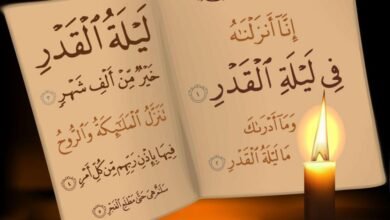 إِنَّآ أَنزَلْنَٰهُ
فِى لَيْلَةِ ٱلْقَدْرِ ١
وَمَآ أَدْرَىٰكَ
مَا لَيْلَةُ ٱلْقَدْرِ ٢
لَيْلَةُ ٱلْقَدْرِ
خَيْرٌ مِّنْ أَلْفِ شَهْرٍ ٣
تَنَزَّلُ ٱلْمَلَٰٓئِكَةُ وَٱلرُّوحُ
فِيهَا بِإِذْنِ رَبِّهِم مِّن كُلِّ أَمْرٍ ٤
سَلَٰمٌ هِىَ حَتَّىٰ مَطْلَعِ ٱلْفَجْرِ ٥